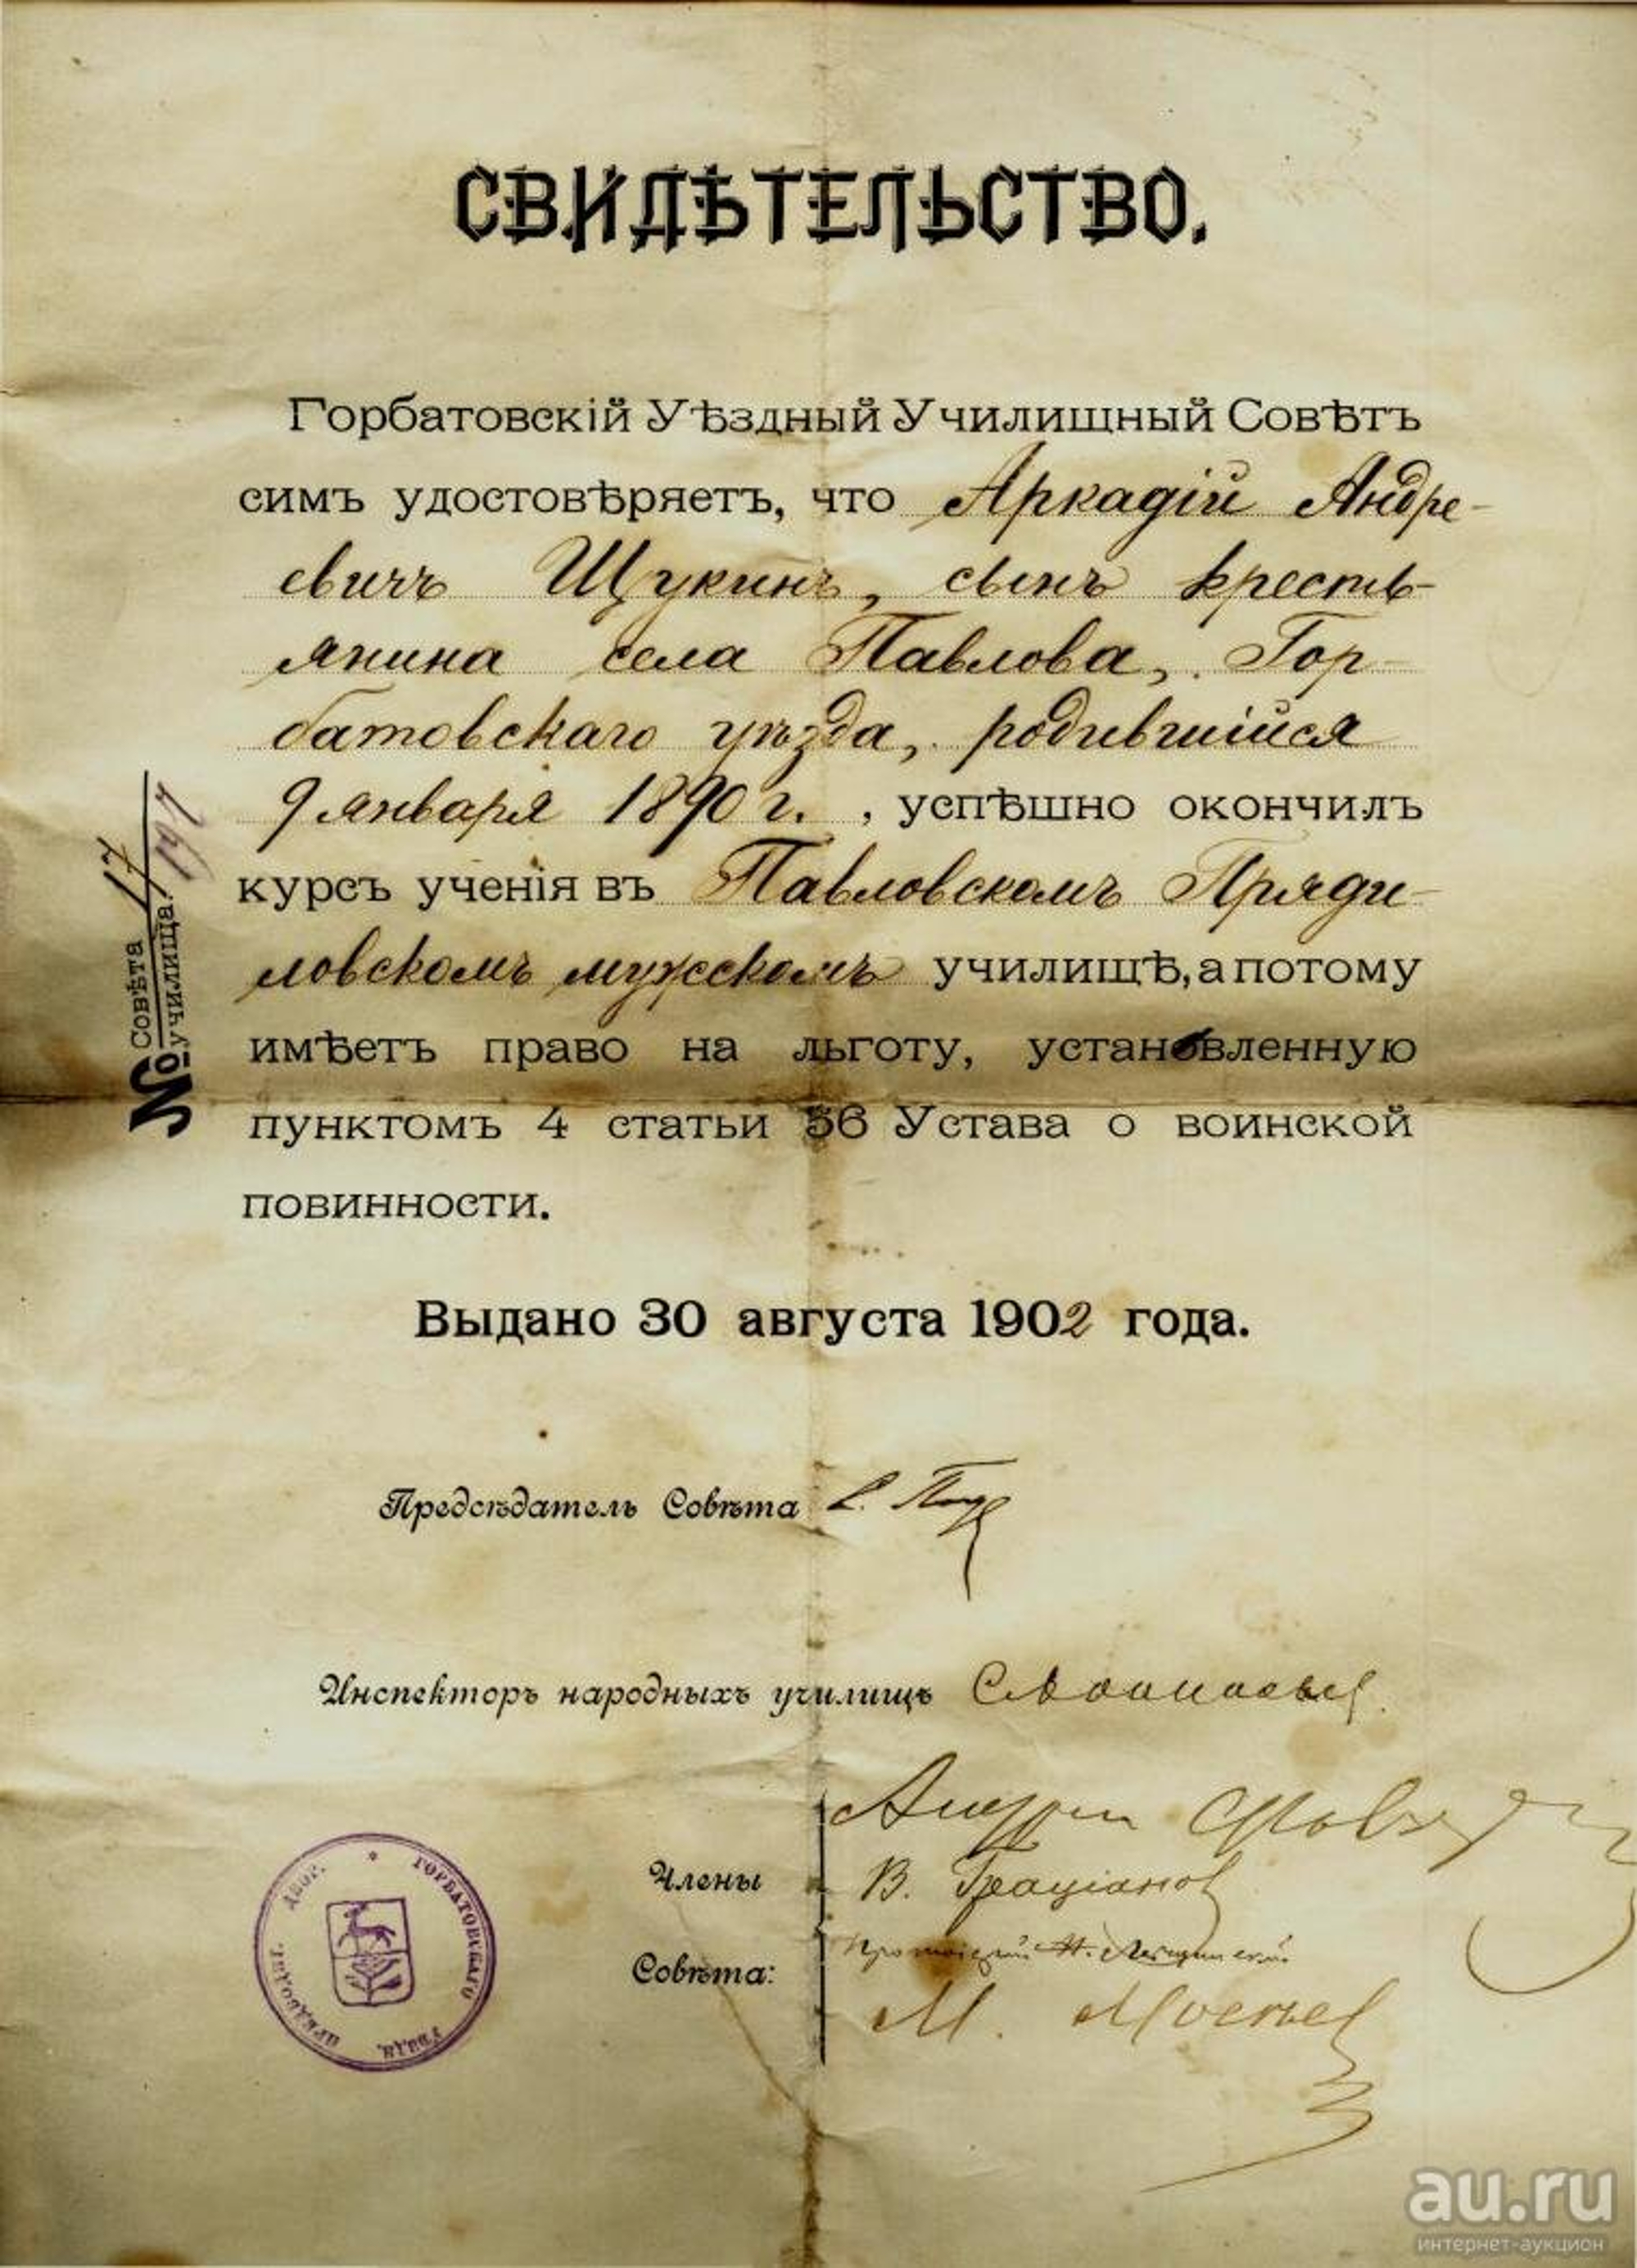 СВИДѢТЕЛЬСТВО.
Горбатовскій Уѣздный Училищный Совѣтъ
симъ удостовѣряетъ, что Аркадій Андре-
евичъ Щукинъ, сынъ кресть-
янина села Павлова, Гор-
батовскаго уѣзда, родившійся
9 января 1890 г. , успѣшно окончилъ
курсъ ученія въ Павловскомъ Пряди-
ловскомъ мужскомъ училищѣ, а потому
имѣетъ право на льготу, установленную
пунктомъ 4 статьи 56 Устава о воинской
повинности.
№ Совѣта 17
училища
Выдано 30 августа 1902 года.
Предсѣдатель Совѣта
Инспекторъ народныхъ училищъ
Члены
Совѣта:
В. Граціановъ
М.
ГОРБАТОВСКАГО УѢЗДА. ПРЕДВОДИТ. ДВОР.
au.ru
интернет-аукцион